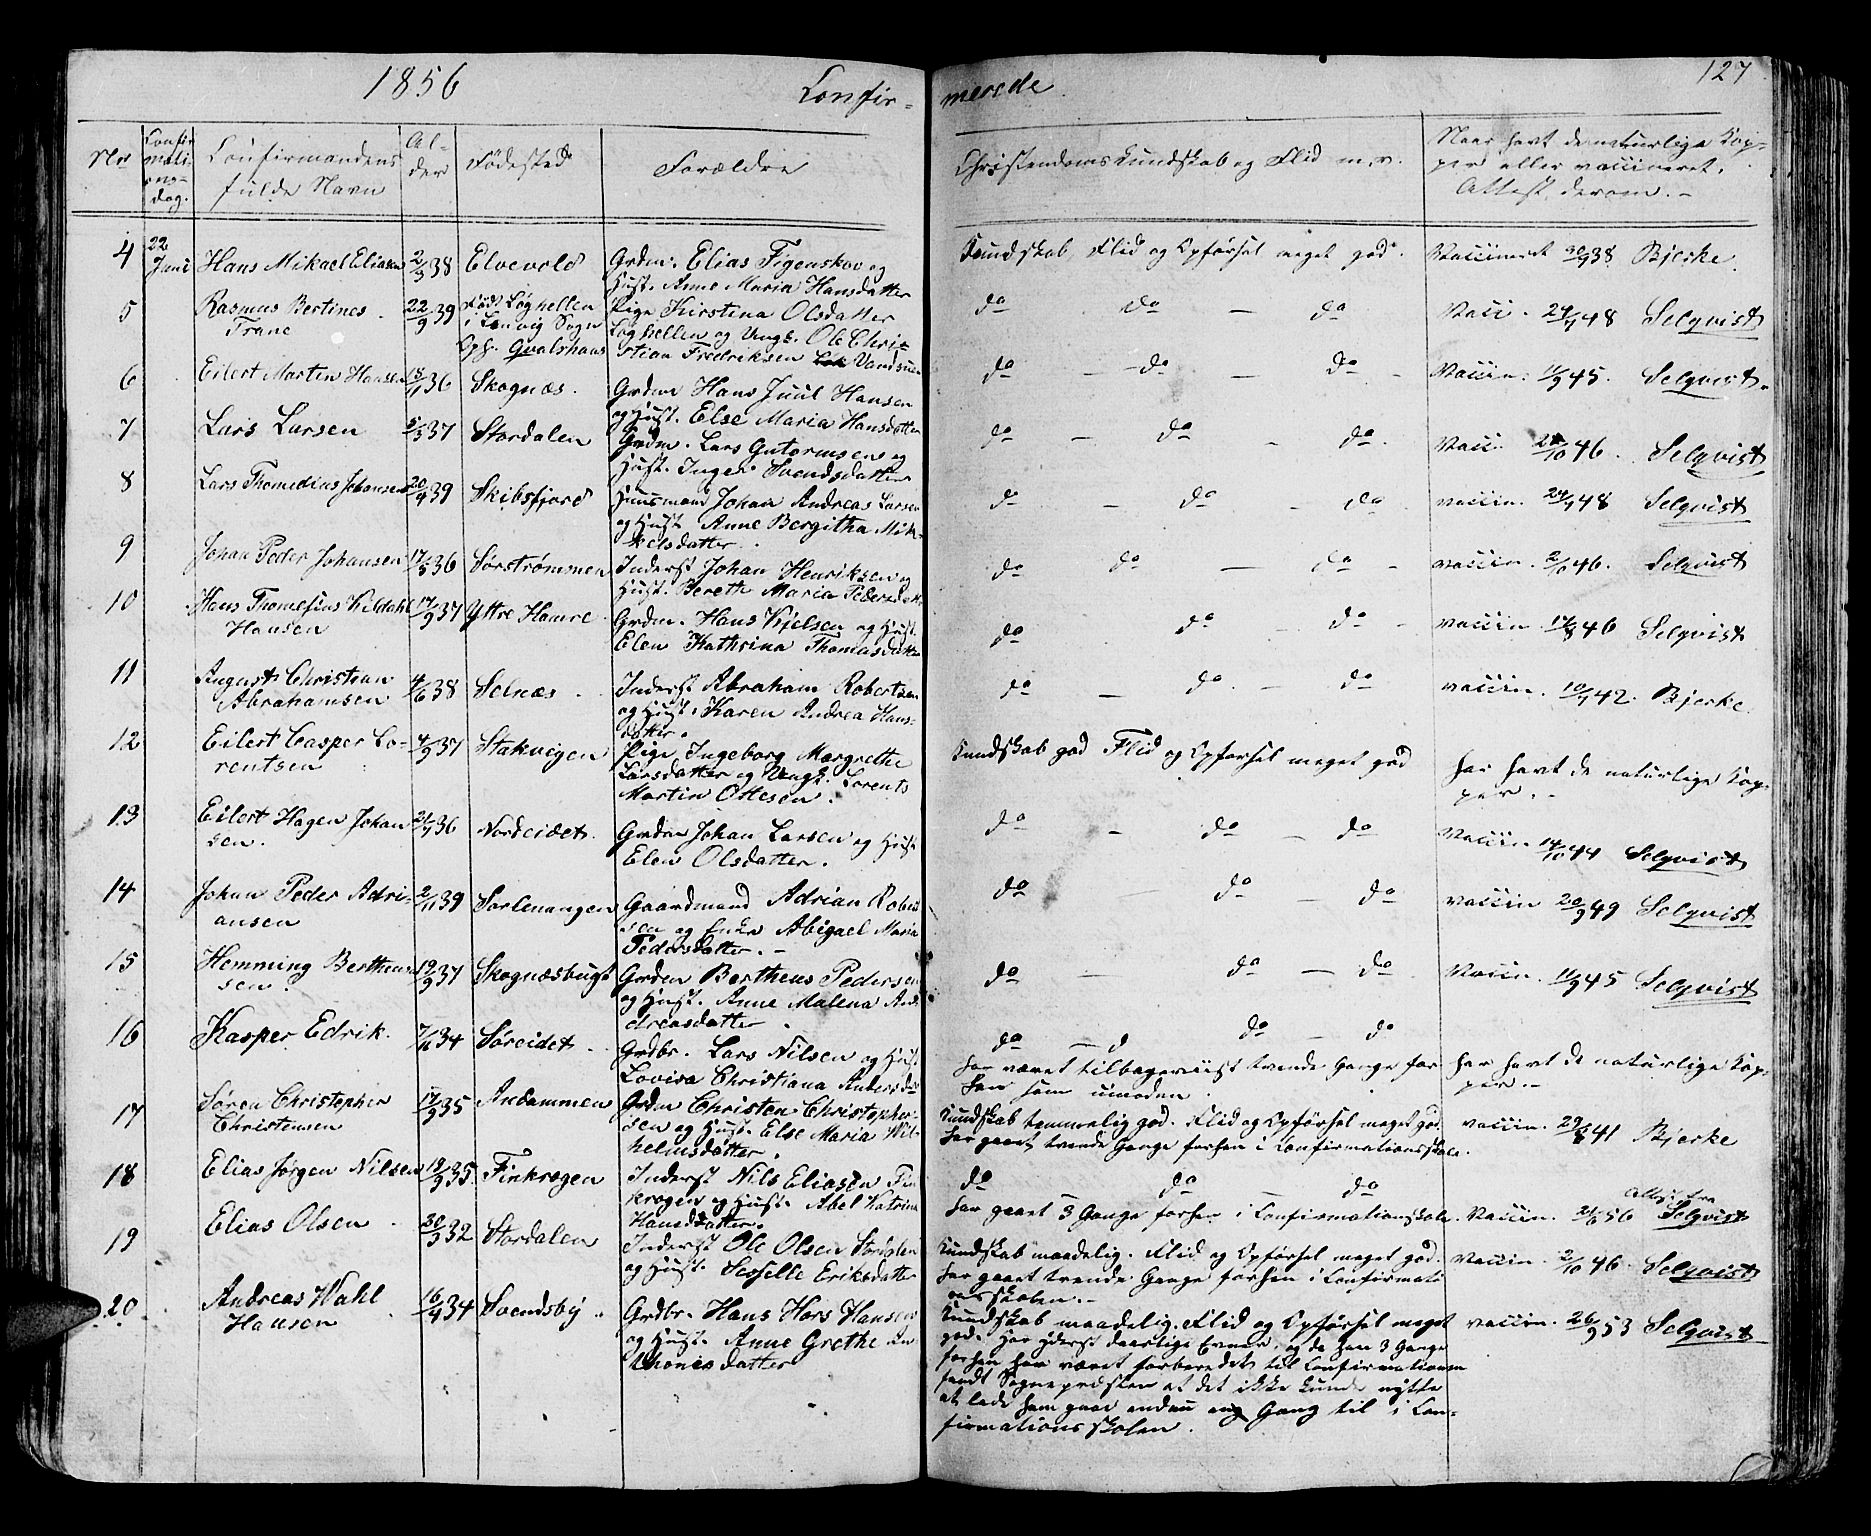 1856 Confir-
merede.
127
Nr
Confir
mati
ons-
dag.
Confirmandens
fulde Navn
Al-
der
Fødested
Forældre
Christendoms Kundskab og Flid m. v.
Naar havt de naturlige Kop-
per eller vaccineret.
Attest derom. -
4 22 Juni Hans Mikael Eliasen 2/3 38 Elvevold Grdm. Elias Figenskov og
Hust. Anne Maria Hansdatter
Kundskab, Flid og Opførsel meget god. Vaccineret 30/9 38 Bjerke.
5 Rasmus Bertines 22/9 39 Født Løghellen Pige Kirstina Olsdatter
Trane i Lenvig Sogn Løghellen og Ungk. Ole Chri-
Opf. Qvalshaus stian Fredriksen Vandsuen
do do - do Vacc. 24/7 48 Selqvist
6 Eilert Martin Hansen 18/11 36 Skognæs. Grdm Hans Juul Hansen
og Hust. Else Maria Hansdatter
do - do - do - Vaccin. 11/9 45. Selqvist.
7 Lars Larsen 5/3 37 Stordalen Grdm. Lars Gutormsen og
Hust. Inger Svendsdatter
do - do - do. Vacc. 28/10 46. Selqvist
8 Lars Thomedius Johansen 20/9 39 Skibsfjord Huusmand Johan Andreas Larsen
og Hust Anne Bergitha Mik-
kelsdatter.
do - do - do vaccin. 24/7 48 Selqvist
9 Johan Peder Johansen 17/5 36 Sørstrømmen Inderst Johan Henriksen og
Hust. Bereth Maria Pedersdatt
do do - do - vaccin. 2/10 46. Selqvist
10 Hans Thomesius Kildahl 17/9 37 Yttre Hamre Grdm. Hans Kjelsen og Hust.
Hansen Elen Kathrina Thomasdatter
do do - do - vaccin. 14/8 46 Selqvist
11 August Christian 4/6 38 Selnæs. Inderst Abraham Robertsen
Abrahamsen og Hust. Karen Andrea Hans-
datter.
do - do. - do vaccin. 10/7 42. Bjerke.
12 Eilert Casper Lo- 4/9 37 Stakvigen Pige Ingeborg Margrethe
rentsen Larsdatter og Ungk. Lorents
Martin Ottesen.
Kundskab god Flid og Opførsel meget god har havt de naturlige Kop-
per. -
13 Eilert Hagen Johan 21/7 36 Nordeidet. Grdm Johan Larsen og Hust
sen. Elen Olsdatter.
do - do - do Vaccin. 14/10 44 Selqvist
14 Johan Peder Adri- 2/11 39 Sørlenangen Gaardmand Adrian Robert
ansen sen og Abigael Maria
Pedersdatter. -
do do - do vaccin 20/9 49 Selqvist
15 Hemming Berthens 19/9 37 Skognæsbugt Grdm Bertheus Pedersen
sen. og Hust. Anne Malena An-
dreasdatter.
do - do - do Vaccin. 11/9 45 Selqvist
16 Kasper Edrik. 7/11 34 Søreidet Grdbr. Lars Nilsen og Hust
Lovisa Christiana Andersdat
do - d do - do
har været tilbageviist trende Gange før
hen som umoden.
har havt de naturlige Kop-
per. -
17 Søren Christopher 17/9 35 Andammen Grdm Christen Christopher-
Christensen sen og Hust. Else Maria Wil-
helmsdatter.
Kundskab temmelig god. Flid og Opførsel meget god.
har gaaet trende Gange forhen i Confirmationsskole.
vaccin. 29/8 41 Bjerke
18 Elias Jørgen Nilsen 19/9 35 Finkrogen Inderst Nils Eliasen Fin
krogen og Hust. Abel Katrina
Hansdatter.
do - do - do
har gaaet 3 Gange forhen i Confirmationsskole. Vaccin. 21/6 56 Attest fra Selqvist
19 Elias Olsen 30/3 32 Stordalen Inderst Ole Olsen Stordalen
og Hust. Sesselle Eriksdatter
Kundskab maadelig. Flid og Opførsel meget god.
har gaaet trende Gange forhen i Confirmati
onsskolen. -
vaccin. 2/10 46. Selqvist
20. Andreas Wahl 16/4 34 Svendsby. Grdbr. Hans Hors Hansen
Hansen og Hust. Anne Grethe An
thonisdatter
Kundskab maadelig. Flid og Opførsel meget
god. Har yderst daarlige Evner, og da han 3 Gange
forhen har været forberedet til Confirmationen
fandt Sognepræsten at det ikke kunde nytte
at lade ham gaae endnu en Gang til i Con-
firmationsskolen.
vaccin. 26/9 53 Selqvist